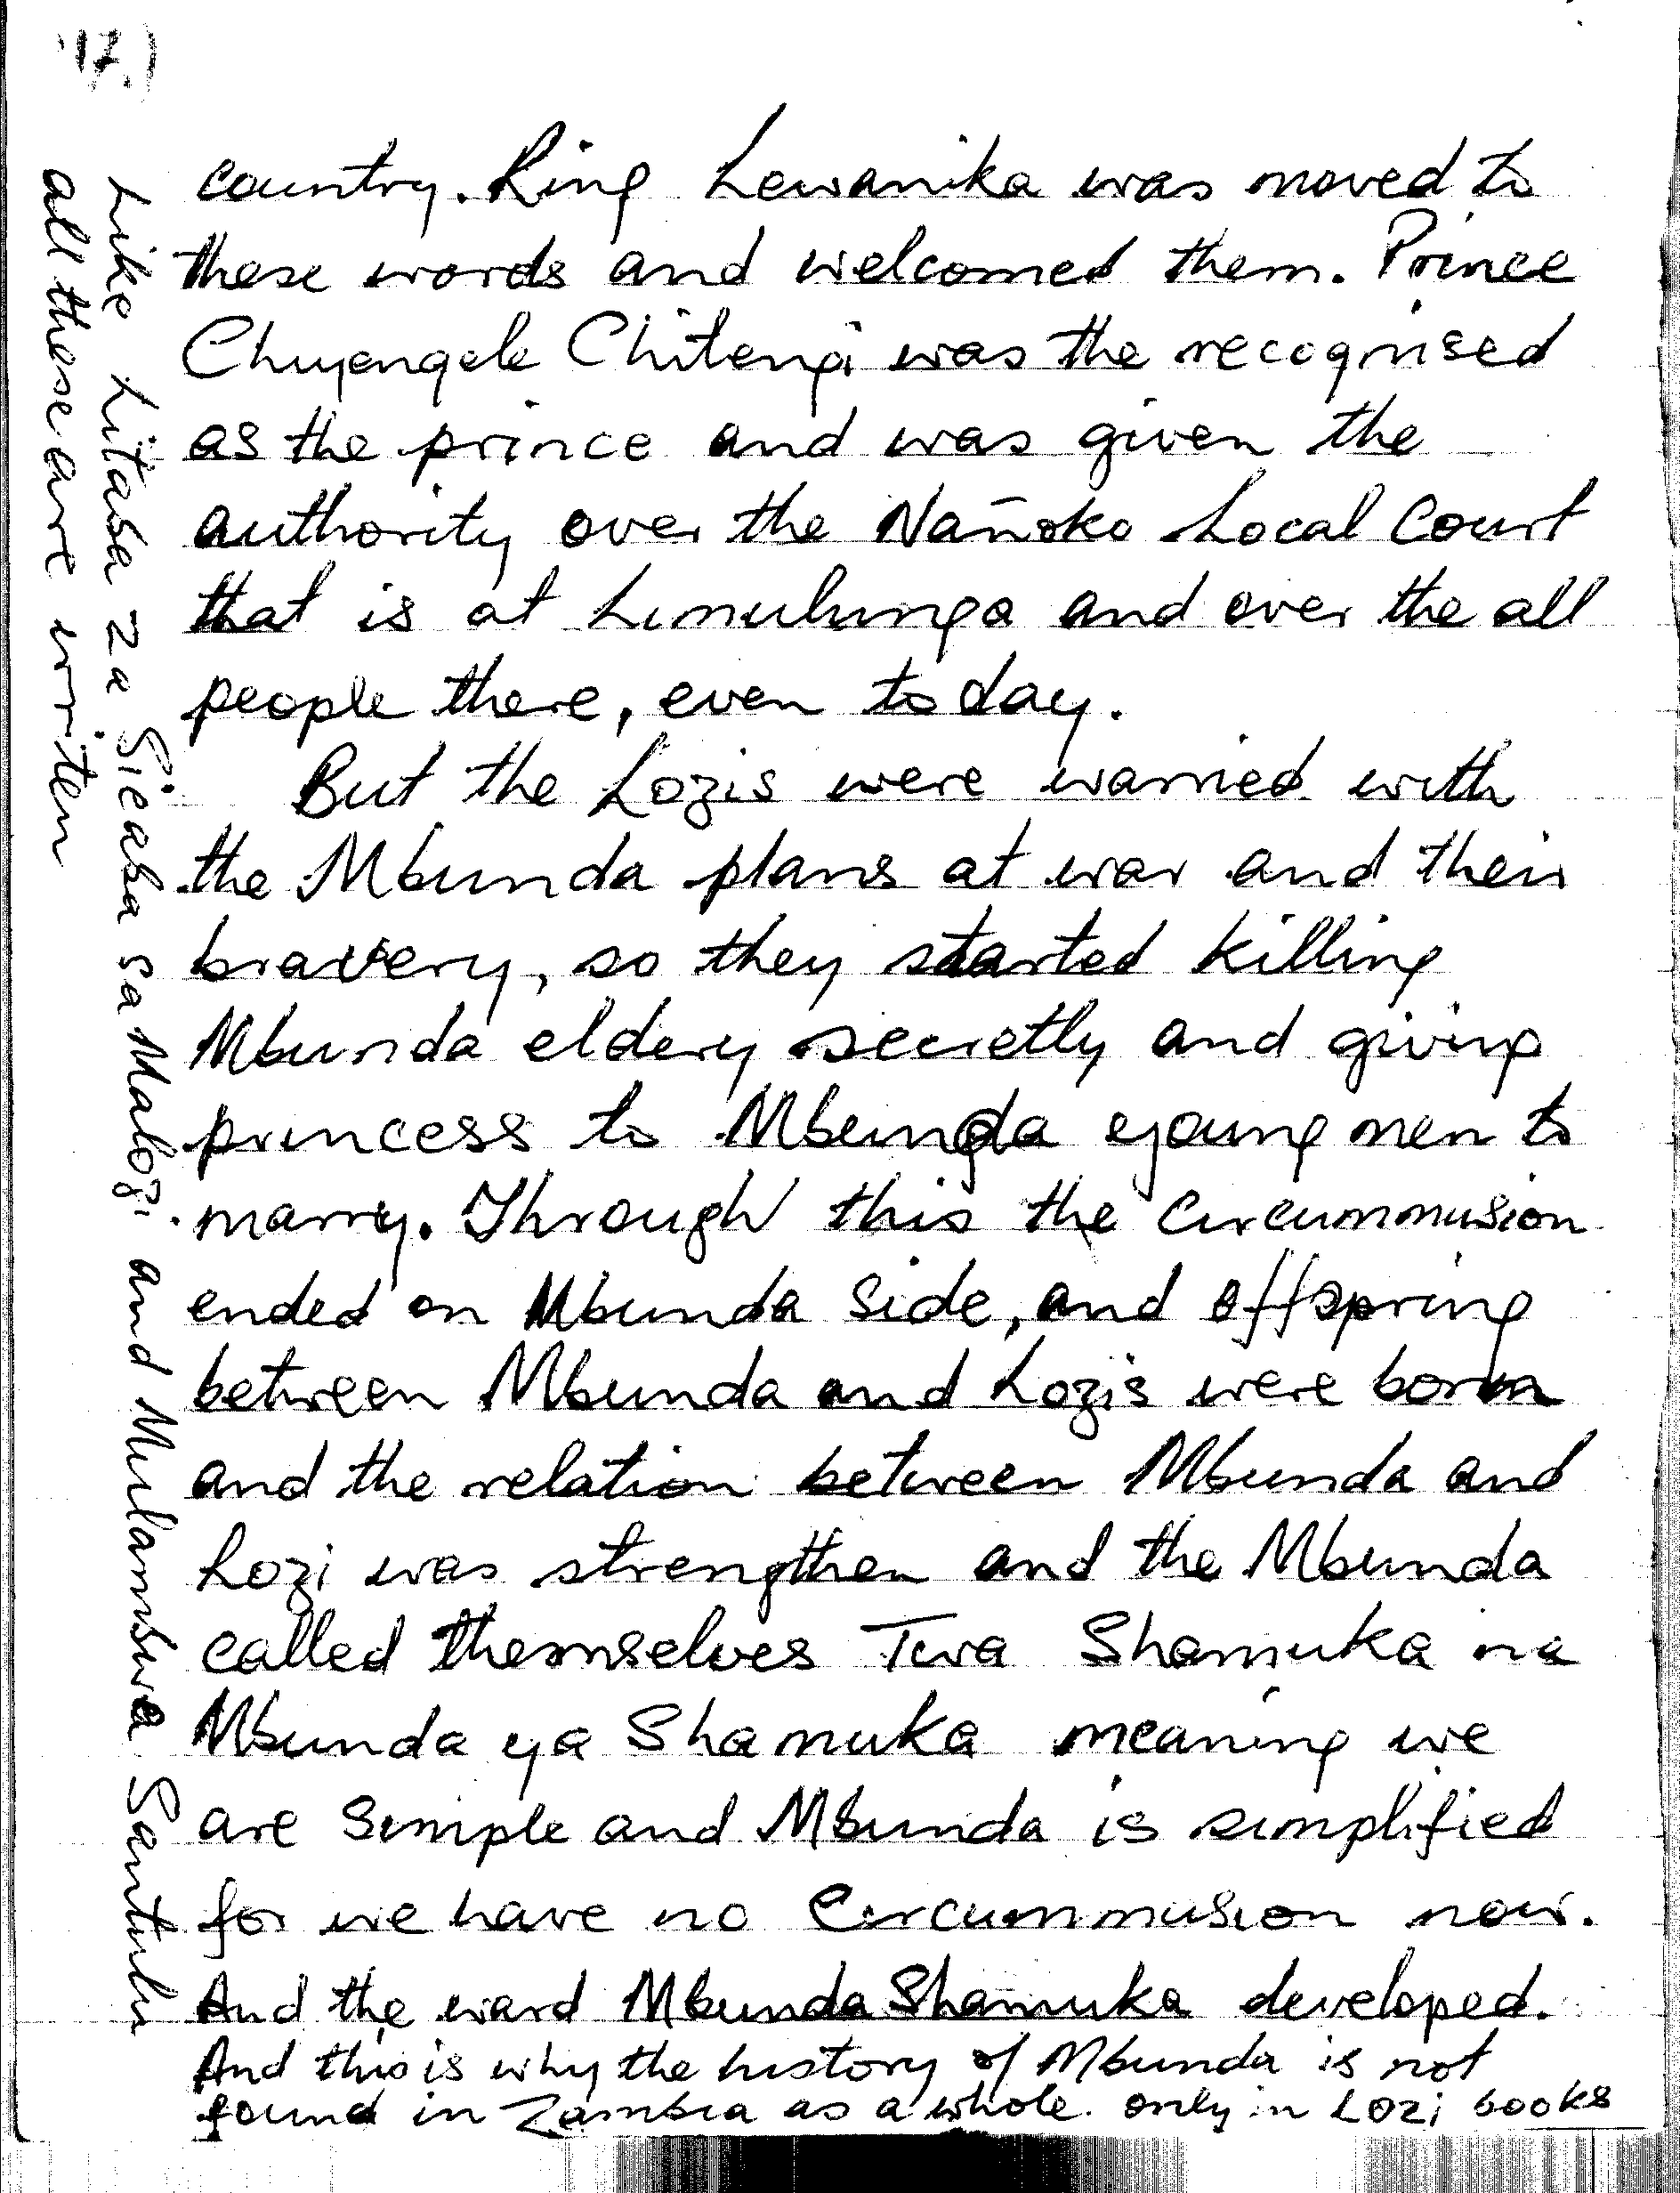 17.)
country. King Lewanika was moved to
these words and welcomed them. Prince
Chuyengele Chitengi was the recognised
as the prince and was given the
authority over the Nañoko Local Court
that is at Limulunga and over the all
people there, even today.
But the Lozis were warried with
the Mbunda plans at war and their
bravery, so they started killing
Mbunda eldery secretly and giving
princess to Mbunda young men to
marry. Through this the Circummusion
ended on Mbunda side, and offspring
between Mbunda and Lozis were born
and the relation between Mbunda and
Lozi was strengthen and the Mbunda
called themselves Twa Shamuka na
Mbunda ya Shamuka meaning we
are Simple and Mbunda is simplified
for we have no Circummusion now.
And the ward Mbunda Shamuka developed.
And this is why the history of Mbunda is not
found in Zambia as a whole. only in Lozi books
Like Litaba za Sicaba sa Malozi and Mulambwa Santulu
all these are writen